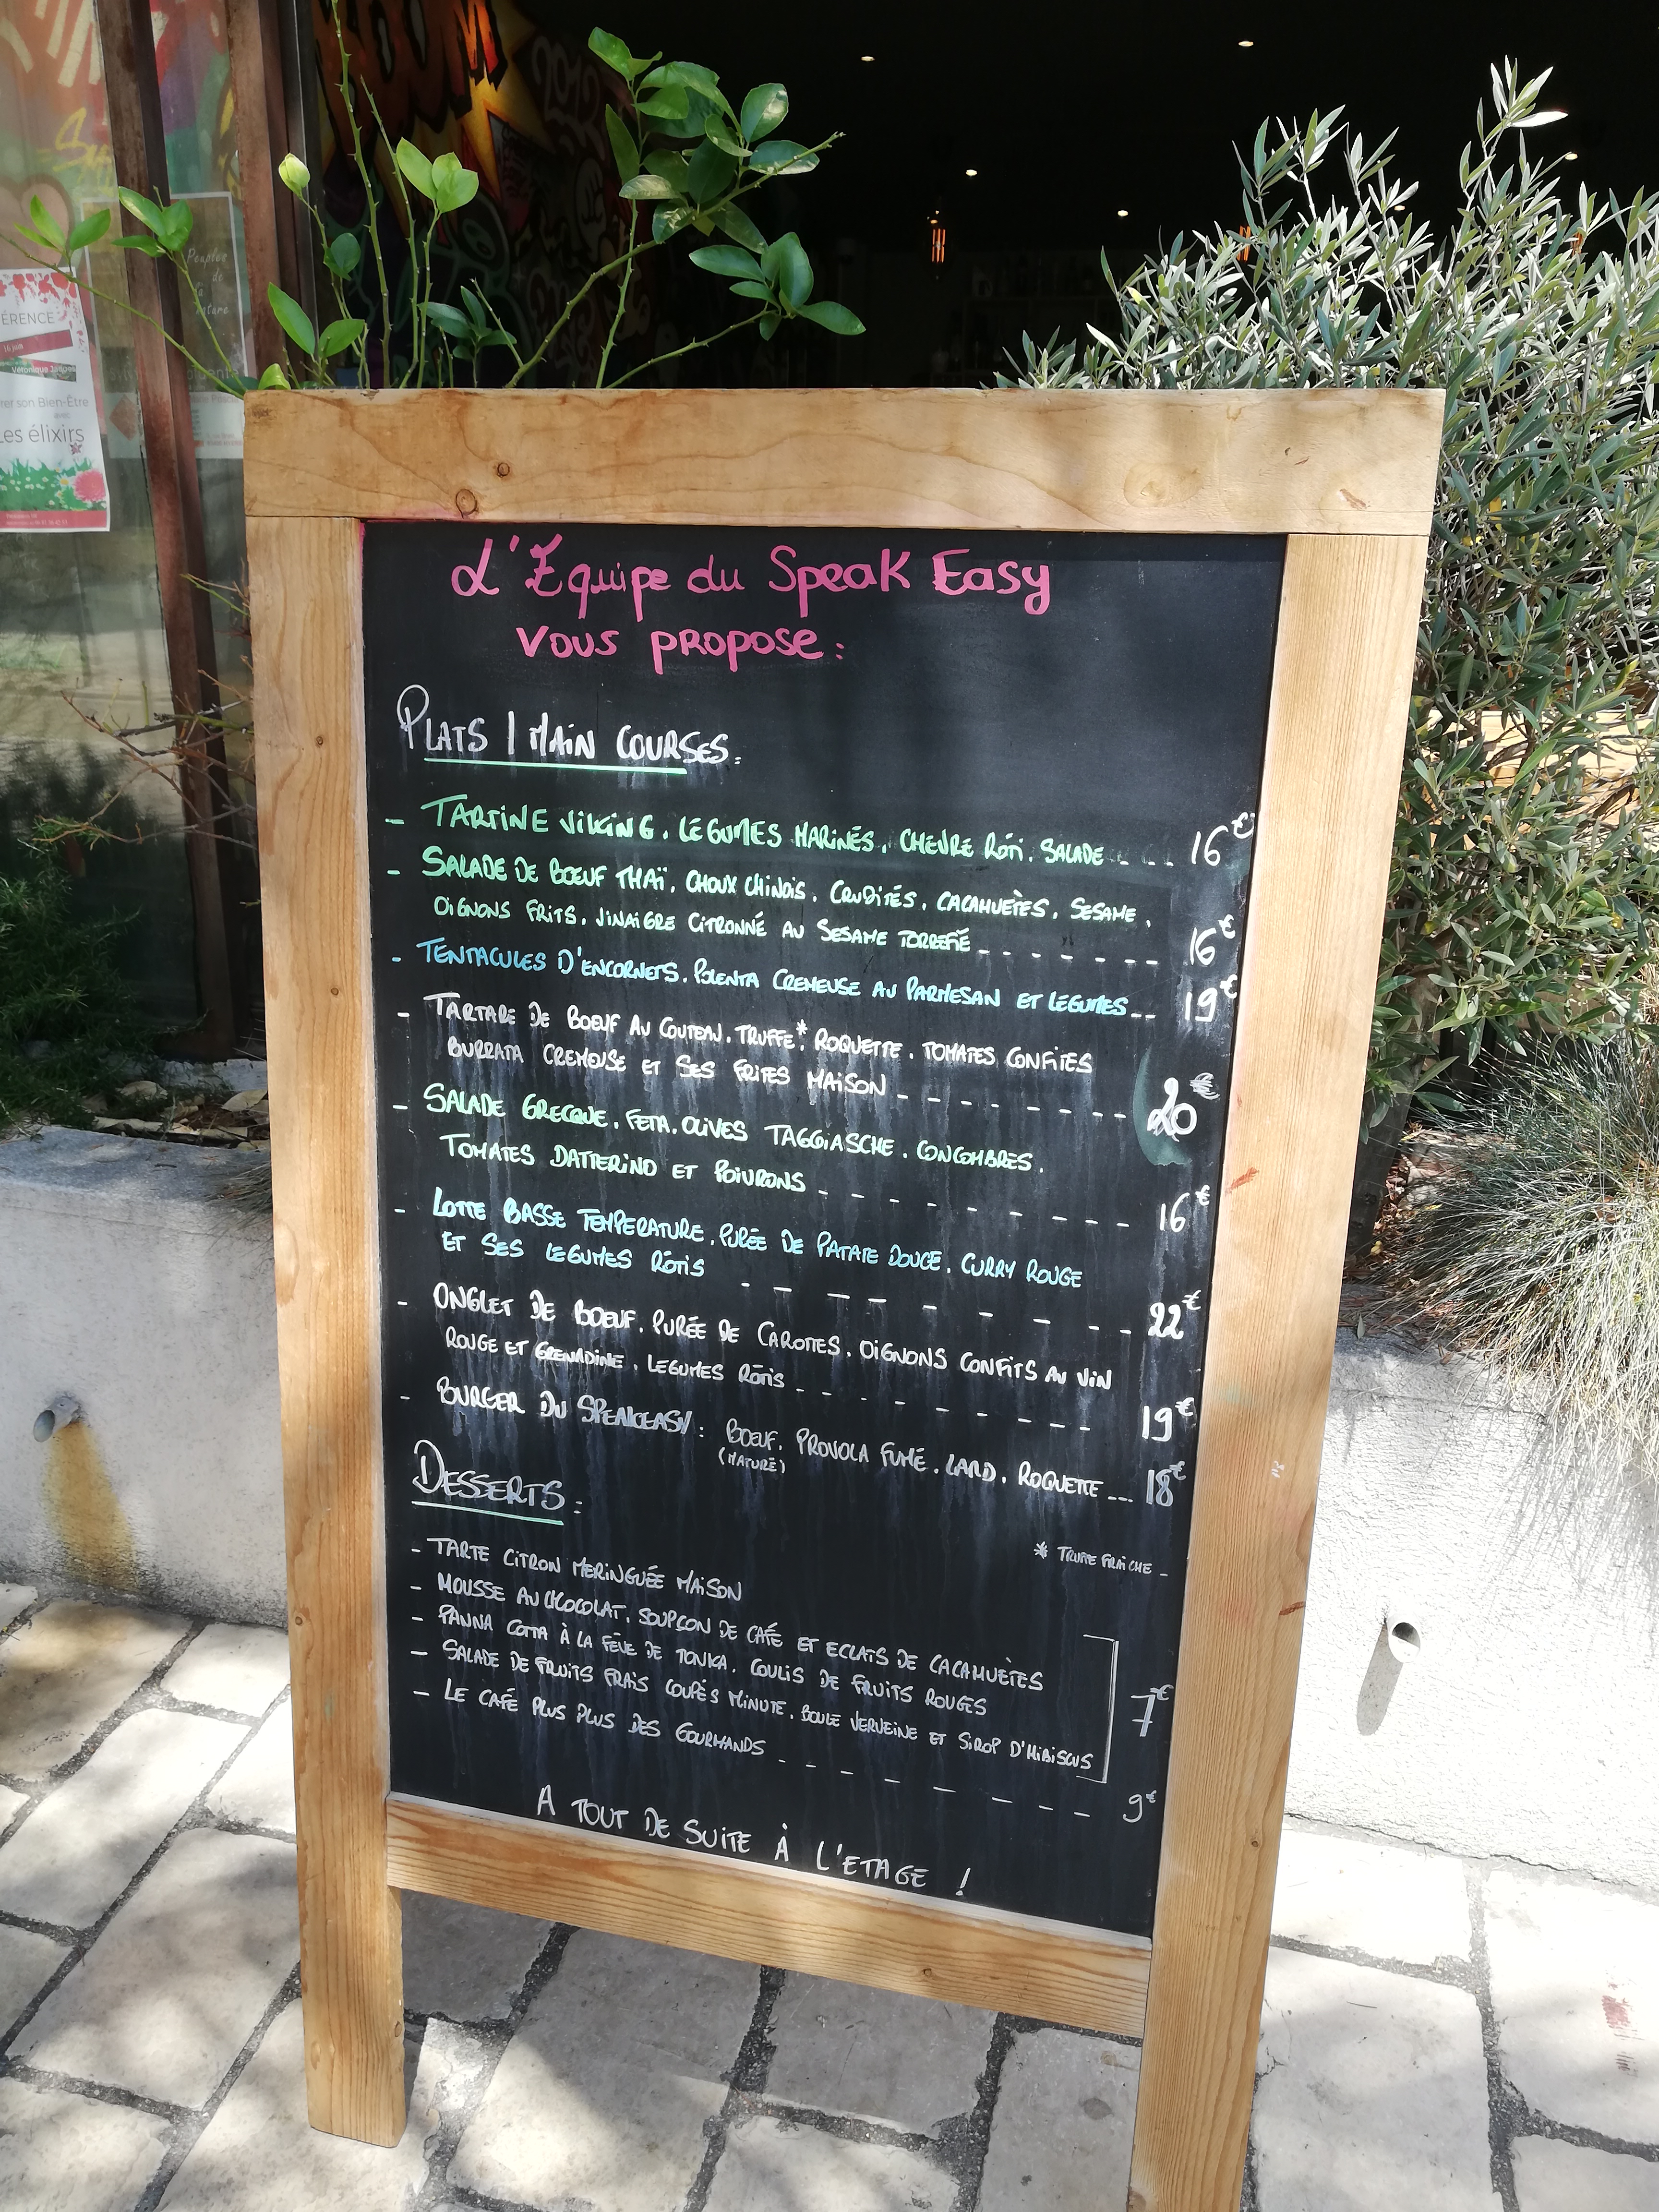 BOOM
2012
Peuples
de
la
nature
ÉRENCE
16 juin
Véronique Jaques
rer son Bien-Être
avec
Les élixirs
L'Equipe du Speak Easy
vous propose :
PLATS / MAIN COURSES :
- TARTINE VIKING, LÉGUMES MARINÉS, CHEVRE RÔTI, SALADE - - - - 16€
- SALADE DE BOEUF THAÏ, CHOUX CHINOIS, CRUDITÉS, CACAHUÈTES, SESAME,
OIGNONS FRITS, VINAIGRE CITRONNÉ AU SESAME TORREFIÉ - - - - - - - 16€
- TENTACULES D'ENCORNETS, POLENTA CREMEUSE AU PARMESAN ET LEGUMES - - 19€
- TARTARE DE BOEUF AU COUTEAU, TRUFFE*, ROQUETTE, TOMATES CONFITES
BURRATA CREMEUSE ET SES FRITES MAISON - - - - - - - - 20€
- SALADE GRECQUE, FETA, OLIVES TAGGIASCHE, CONCOMBRES,
TOMATES DATTERINO ET POIVRONS - - - - - - - - - 16€
- LOTTE BASSE TEMPERATURE, PURÉE DE PATATE DOUCE, CURRY ROUGE
ET SES LEGUMES RÔTIS - - - - - - - - - - 22€
- ONGLET DE BOEUF, PURÉE DE CAROTTES, OIGNONS CONFITS AU VIN
ROUGE ET GRENADINE, LEGUMES RÔTIS - - - - - - - - - 19€
- BURGER DU SPEAKEASY : BOEUF, PROVOLA FUMÉ, LARD, ROQUETTE - - - 18€
(MATURÉ)
DESSERTS :
* TRUFFE FRAÎCHE -
- TARTE CITRON MERINGUÉE MAISON
- MOUSSE AU CHOCOLAT, SOUPÇON DE CAFÉ ET ECLATS DE CACAHUÈTES
- PANNA COTTA À LA FÈVE DE TONKA, COULIS DE FRUITS ROUGES
- SALADE DE FRUITS FRAIS COUPÉS MINUTE, BOULE VERVEINE ET SIROP D'HIBISCUS
7€
- LE CAFÉ PLUS PLUS DES GOURMANDS - - - - - - - - - 9€
A TOUT DE SUITE À L'ETAGE !